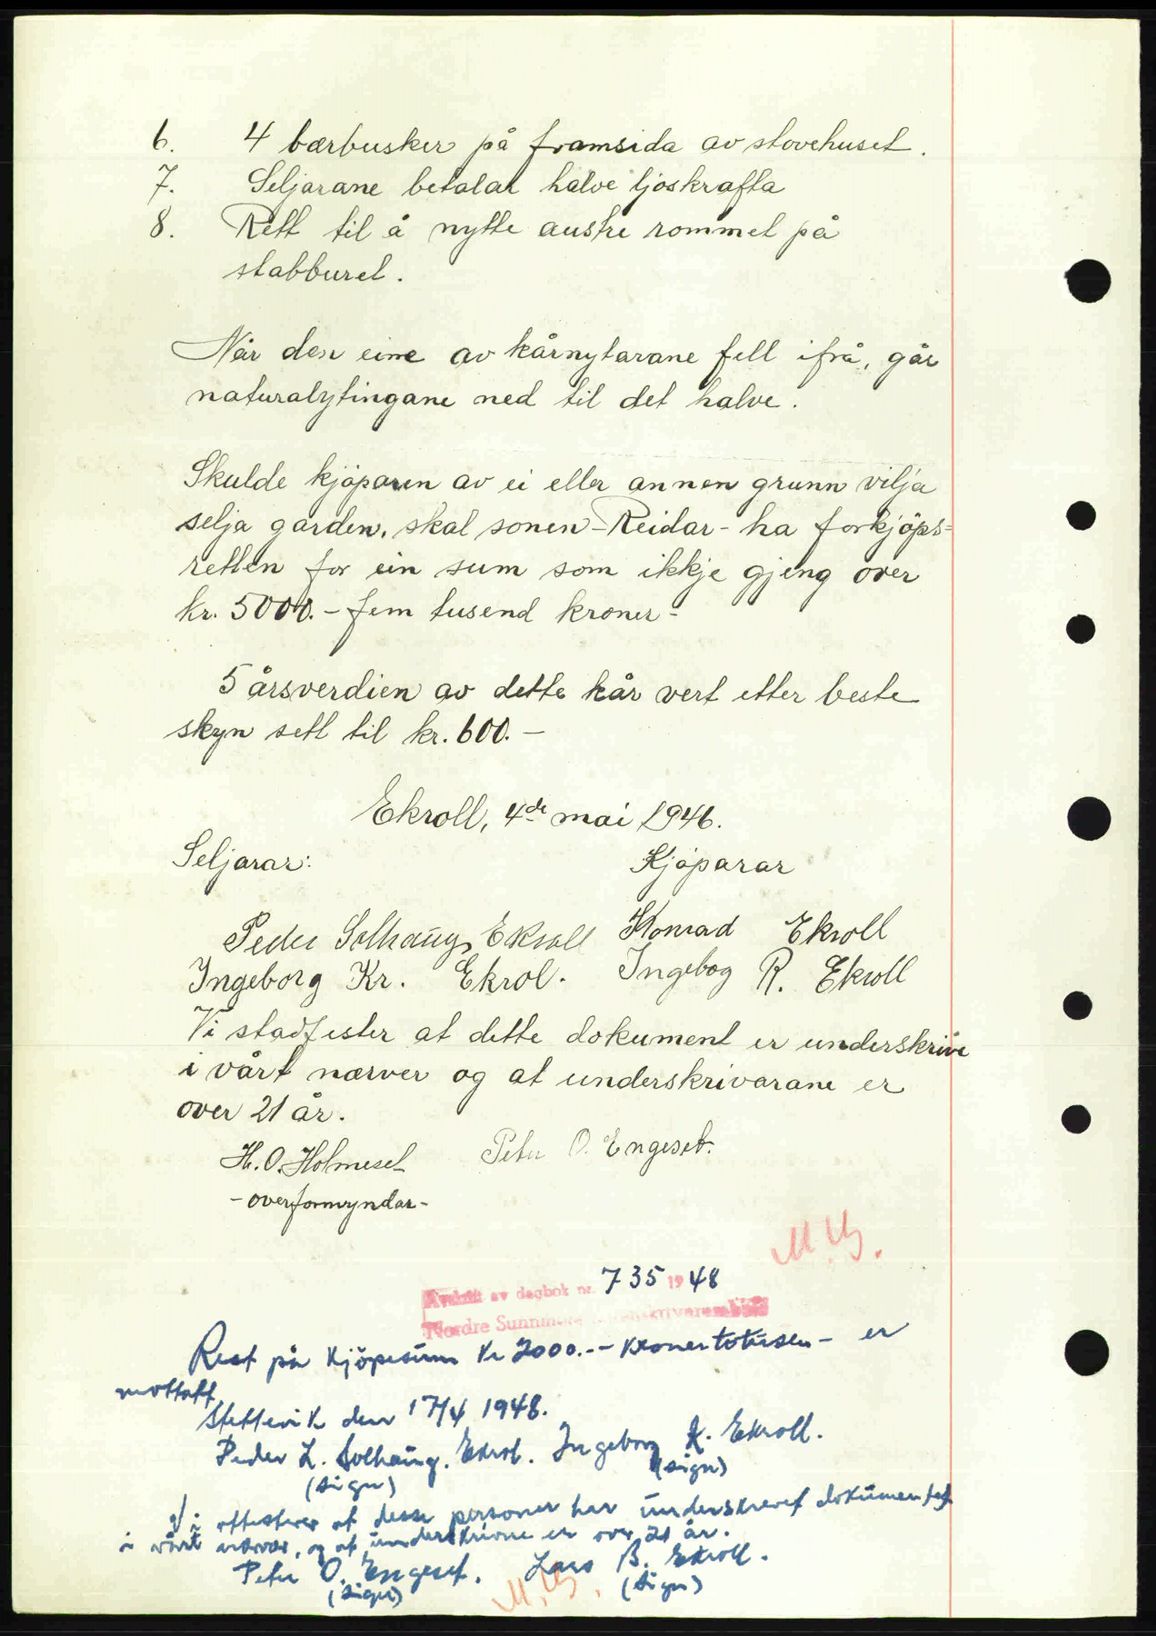 6. 4 bærbusker på framsida av stovehuset.
7. Seljarane betalar halve ljoskrafta
8. Rett til å nytte austre rommet på
stabburet.
Når den eine av kårnytarane fell ifrå, går
naturalytingane ned til det halve.
Skulde kjøparen av ei eller annen grunn vilja
selja garden, skal sonen - Reidar - ha forkjøps=
retten for ein sum som ikkje gjeng over
kr. 5000.- fem tusend kroner -
5 årsverdien av dette kår vert etter beste
skyn sett til kr. 600.-
Ekroll, 4de mai 1946.
Seljarar: Kjøparar
Peder Solhaug Ekroll Konrad Ekroll
Ingeborg Kr. Ekrol. Ingebog R. Ekroll
Vi stadfester at dette dokument er underskrive
i vårt nærver og at underskrivarane er
over 21 år.
H. O. Holmeset Peter O. Engeset.
- overformyndar -
M.B.
Avskrift av dagbok nr. 735 1948
Nordre Sunnmøre
Rest på kjöpesum kr 2000.-- kroner totusen - er
mottatt
Stettevik den 17/4 1948.
Peder L. Solhaug. Ekrol. Ingeborg K. Ekroll.
(sign) (sign)
Vi attesterer at desse personer har underskrevet dokumentet
i vårt nærvær, og at underskrivne er over 21 år.
Peter O. Engeset. Lars B. Ekroll.
(sign) (sign)
M.B.